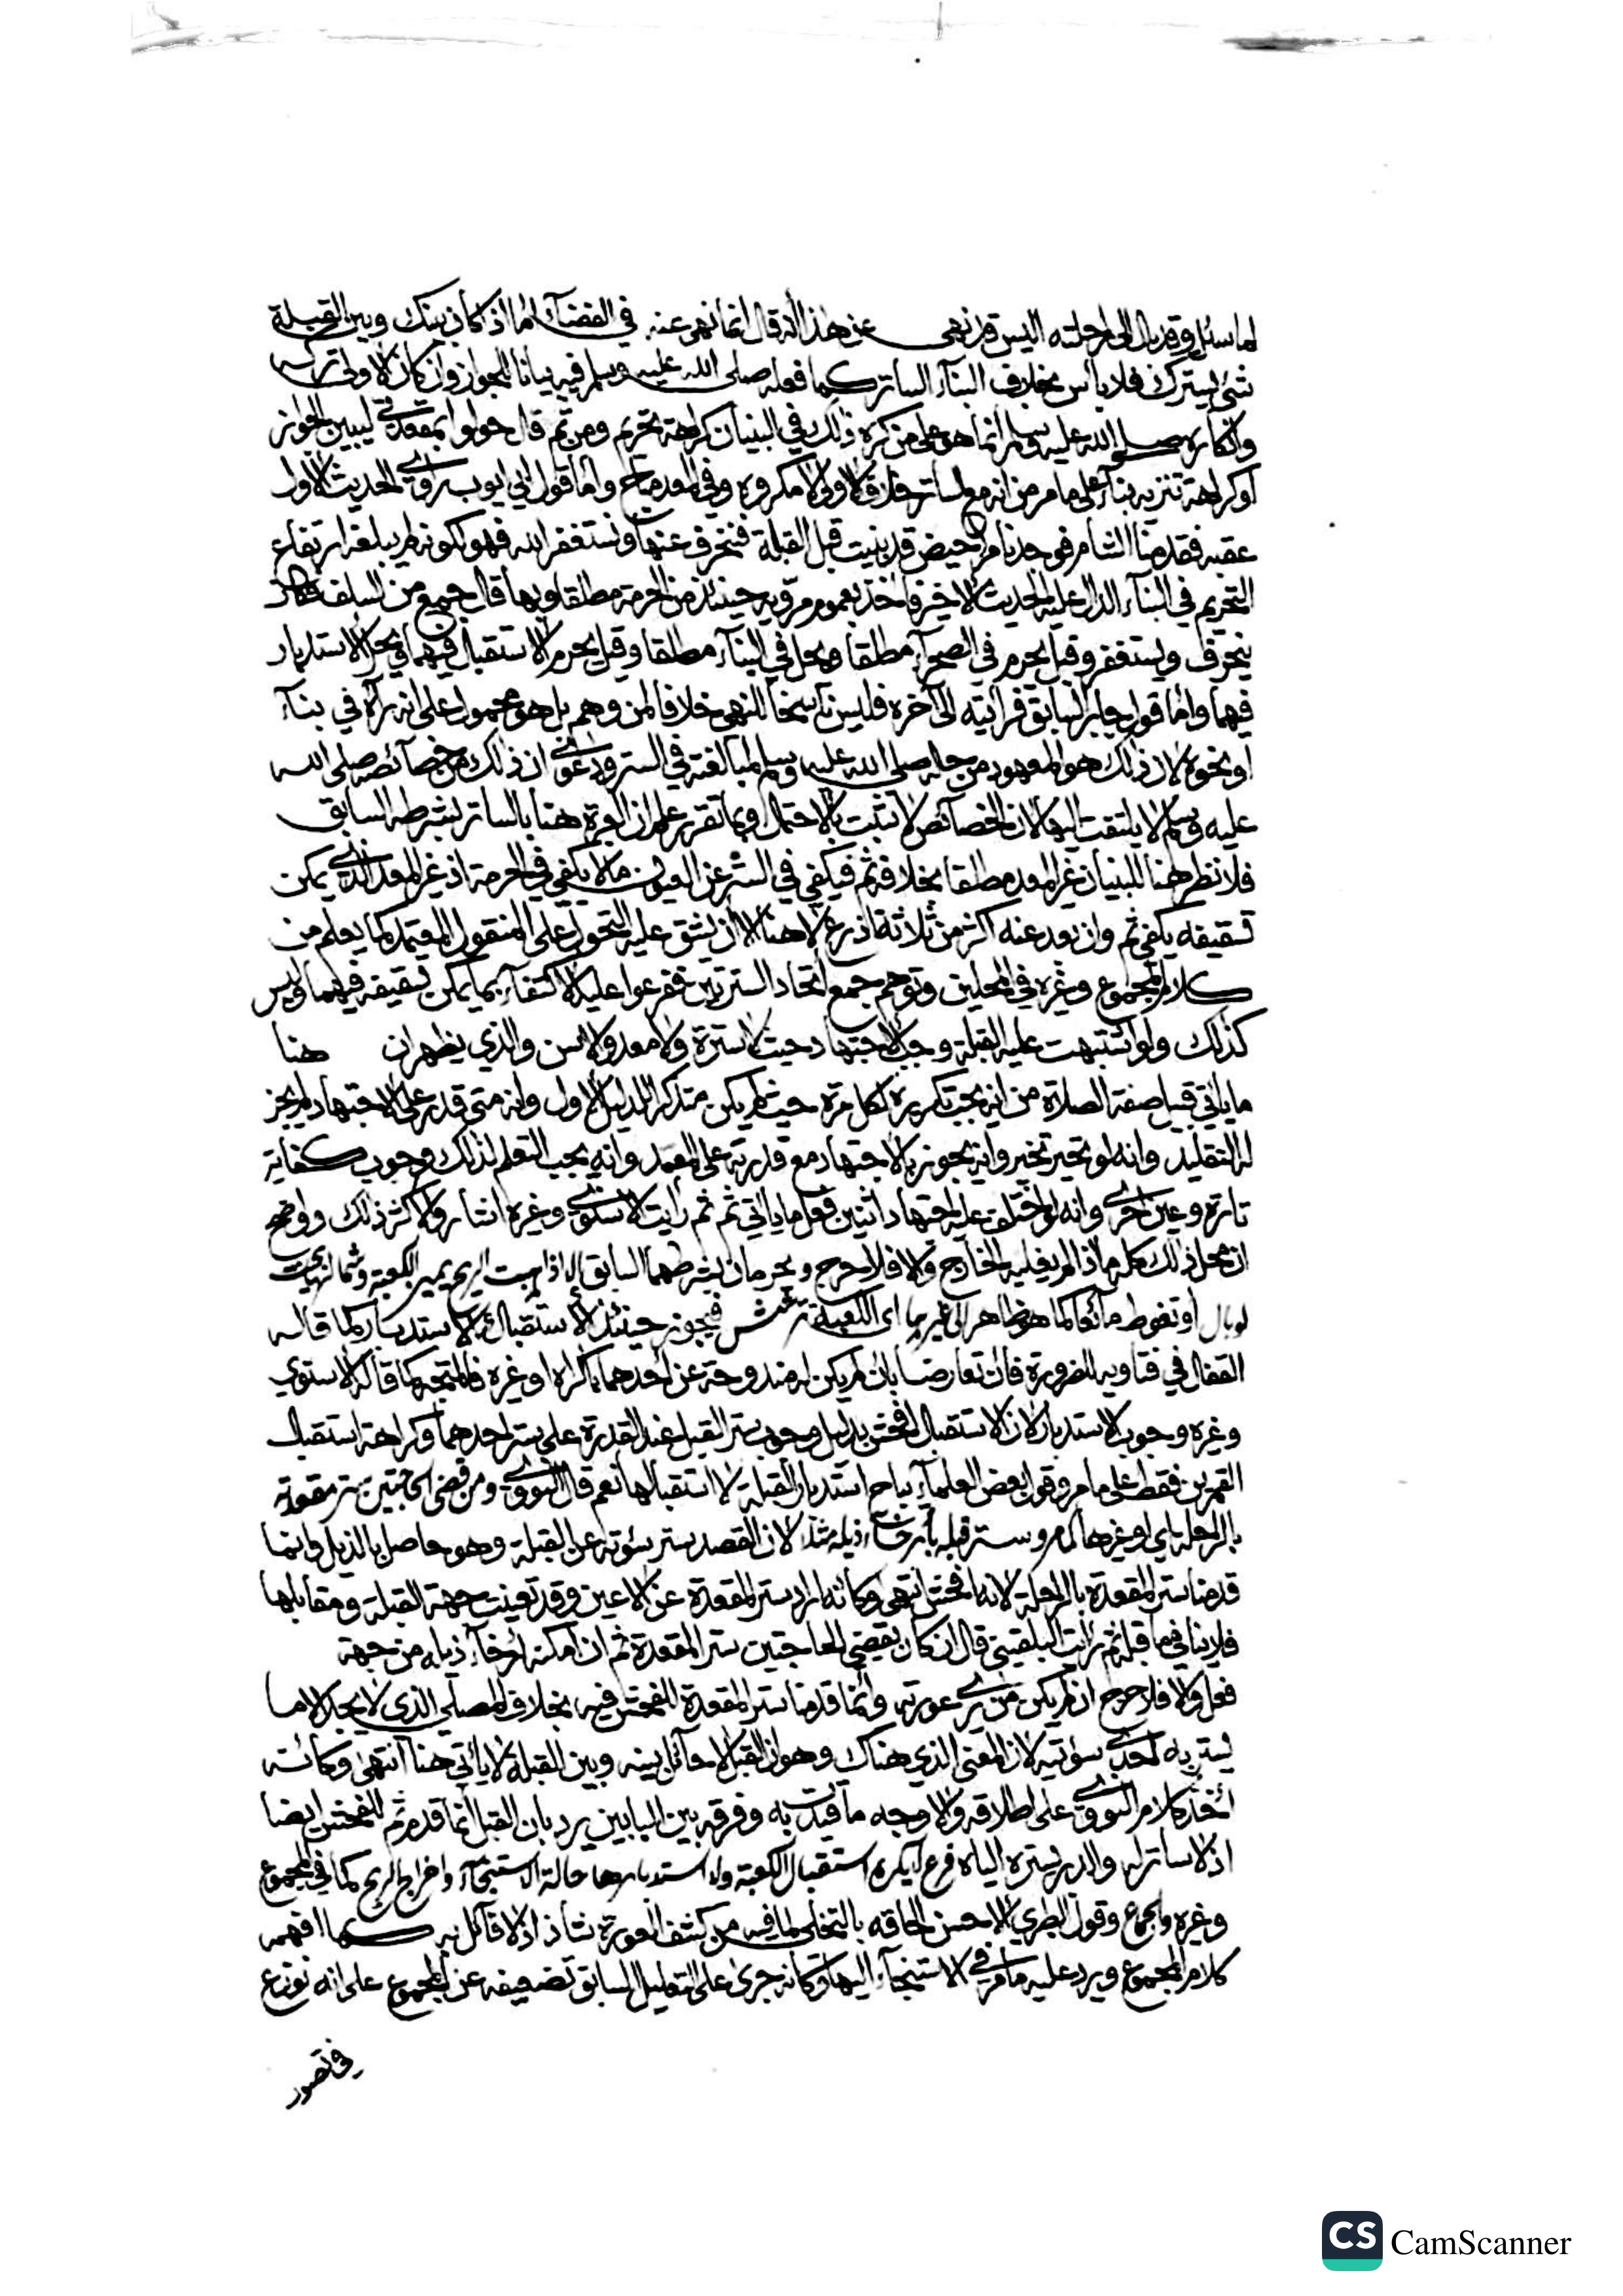 لما سئل وقد بال الى راحلته اليس قد نهى عن هذا انه قال انما نهى عنه في الفضاء اما اذا كان بينك وبين القبلة
شئ يسترك فلا باس بخلاف البناء الساتر كما فعله صلى الله عليه وسلم فيه بيانا للجواز وان كان الاولى تركه
وانكاره صلى الله عليه وسلم انما هو على من كره ذلك في البنيان كراهة تحريم ومن ثم قال حولوا بمقعدتي ليبين الجواز
او كراهة تنزيه بناء على ما مر من انه مع الساتر خلاف الاولى لا مكروه وفي المعد مباح واما قول ابي ايوب راوي الحديث الاول
عقبه فقدمنا الشام فوجدنا مراحيض قد بنيت قبل القبلة فننحرف عنها ونستغفر الله فهو لكونه لم يبلغه ارتفاع
التحريم في البناء الدال عليه الحديث الاخير فاخذ بعموم مرويه حينئذ من الحرمة مطلقا وبها قال جمع من السلف فكان
ينحرف ويستغفر وقيل يحرم في الصحراء مطلقا ويحل في البناء مطلقا وقيل يحرم الاستقبال فيهما ويحل الاستدبار
فيهما واما قول جابر السابق فرايته الى آخره فليس ناسخا للنهي خلافا لمن وهم بل هو محمول على انه رآه في بناء
او نحوه لان ذلك هو المعهود من حاله صلى الله عليه وسلم لمبالغته في الستر ودعوى ان ذلك من خصائصه صلى الله
عليه وسلم لا يلتفت اليها لان الخصائص لا تثبت بالاحتمال وبما تقرر علم ان العبرة هنا بالساتر بشرطه السابق
فلا نظر هنا للبنيان غير المعد مطلقا بخلافه ثم فيكفي في الستر عن العيون ما لا يكفي في الحرمة اذ غير المعد الذي يمكن
تسقيفه يكفي ثم وان بعد عنه اكثر من ثلاثة اذرع لا هنا الا ان يشق عليه التحول على المنقول المعتمد كما يعلم من
كلام المجموع وغيره في المحلين وتوهم جمع اتحاد السترتين ففرعوا عليه الاكتفاء بما يمكن تسقيفه فيهما وليس
كذلك ولو اشتبهت عليه القبلة وجب الاجتهاد حيث لا سترة ولا معد ولا والذي يظهر ان هنا
ما ياتي قبيل صفة الصلاة من انه يجب تكريره لكل مرة حيث لم يكن متذكرا للدليل الاول وانه متى قدر على الاجتهاد لم يجز
له التقليد وانه لو تحير تخير وانه يجوز الاجتهاد مع قدرته على المعد وانه يجب التعلم لذلك وجوب كفاية
تارة وعين اخرى وانه لو اختلف عليه اجتهاد اثنين فعل ما ياتي ثم ثم رايت الاسنوي وغيره اشاروا لاكثر ذلك وواضح
ان محل ذلك كله ما اذا لم يغلبه الخارج والا فلا حرج ويحرمان بشرطهما السابق الا اذا هبت الريح يمين الكعبة وشمالها بحيث
لو بال او تغوط مائعا كما هو ظاهر الى غيرها اى الكعبة ترشش فيجوز حينئذ الاستقبال والاستدبار كما قاله
القفال في فتاويه للضرورة فان تعارضا بان لم يكن له مندوحة عن احدهما باكراه او غيره فالمتجه كما قاله الاسنوي
وغيره وجوب الاستدبار لان الاستقبال افحش بدليل وجوب ستر القبل عند القدرة على ستر احدهما وكراهة استقبال
القمرين فقط على ما مر وقول بعض العلماء يباح استدبار القبلة لا استقبالها نعم قال النووي ومن قضى الحاجتين ستر مقعدته
بالراحلة اي او غيرها كما مر وستر قبله بارخاء ذيله مثلا لان القصد ستر سوءته عن القبلة وهو حاصل بالذيل وانما
قدمنا ستر المقعدة بالراحلة لانها افحش انتهى وكانه اراد ستر المقعدة عن الاعين وقد تعينت جهة القبلة ومقابلها
فلا ينافي فيما قبله ثم رايت البلقيني قال ان كان يقضي الحاجتين ستر المقعدة ثم ان امكنه ارخاء ذيله من جهة
فعل والا فلا حرج ان لم يكن من يرى عورته وانما قدمنا ستر المقعدة للفحش فيه بخلاف المصلي الذي لا يجد الا ما
يستر به احدى سوءتيه لان المعنى الذي هناك وهو ان القبل لا حائل بينه وبين القبلة لا ياتي هنا انتهى وكانه
اخذ كلام النووي على اطلاقه والاوجه ما قيدت به وفرقه بين البابين يرد بان القبل انما قدم ثم للفحش ايضا
اذ لا ساتر له والدبر يستره الياه فرع لا يكره استقبال الكعبة ولا استدبارها حالة الاستنجاء واخراج الريح كما في المجموع
وغيره والجماع وقول الطبري الاحسن الحاقه بالتخلي لما فيه من كشف العورة شاذ اذ لا قائل به كما افهمه
كلام المجموع ويرد عليه ما مر في الاستنجاء اليها وكانه جرى على التعليل السابق تضعيفه عن المجموع على انه نوزع
في تصور
CamScanner